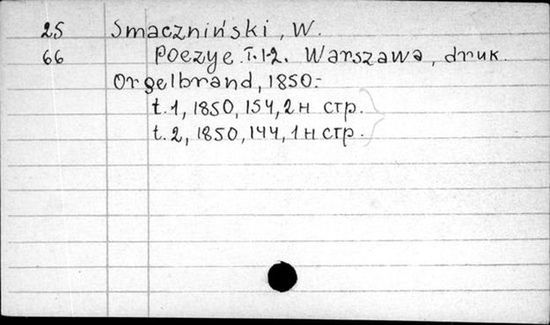 25 Smaczniński, W.
66 Poezye. T.1-2. Warszawa, druk.
Orgelbrand, 1850.-
t.1, 1850, 154, 2 н стр.
t.2, 1850, 144, 1 н стр.